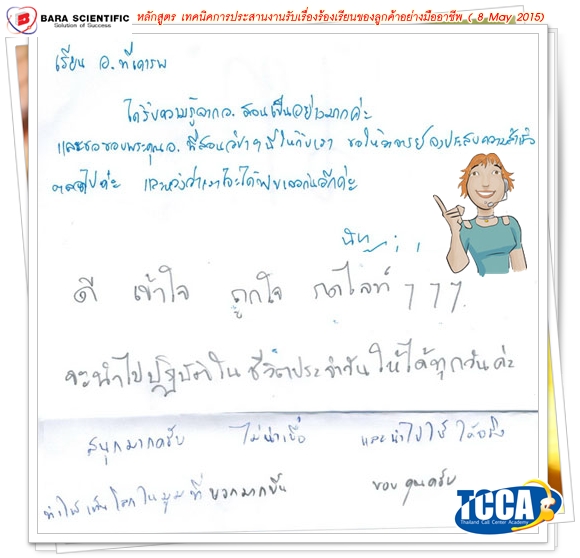 BARA SCIENTIFIC
Solution of Success
หลักสูตร เทคนิคการประสานงานรับเรื่องร้องเรียนของลูกค้าอย่างมืออาชีพ ( 8 May 2015)
เรียน อ. ที่เคารพ
ได้รับความรู้จากอ. สอนเป็นอย่างมากค่ะ
และขอขอบพระคุณอ. ที่สอนวิชาๆนี้ให้กับเรา ขอให้อาจารย์จงประสบความสำเร็จ
ตลอดไปค่ะ และหวังว่าเราจะได้พบเจอกันอีกค่ะ
ดี เข้าใจ ถูกใจ กดไลท์ 777.
จะนำไปปฏิบัติใน ชีวิตประจำวัน ให้ได้ทุกวันค่ะ
สนุกมากครับ ไม่น่าเบื่อ และนำไปใช้ ได้จริง
ทำให้เห็นโลกในมุมที่ บวกมากขึ้น ขอบคุณครับ
TCCA
Thailand Call Center Academy